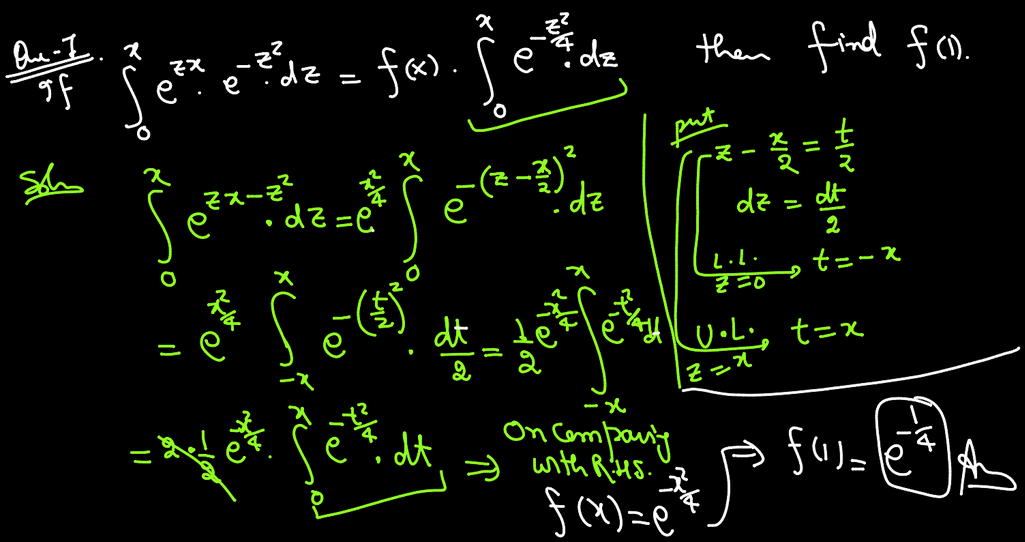 Que-I. If ∫₀ˣ e^{zx} · e^{-z²} · dz = f(x) · ∫₀ˣ e^{-z²/4} · dz then find f(1).
Soln ∫₀ˣ e^{zx-z²} · dz = e^{x²/4} ∫₀ˣ e^{-(z-x/2)²} · dz
= e^{x²/4} ∫₋ₓˣ e^{-(t/2)²} · dt/2 = 1/2 e^{-x²/4} ∫₋ₓˣ e^{-t²/4} dt
= 2 · 1/2 e^{-x²/4} · ∫₀ˣ e^{-t²/4} · dt ⇒ On comparing
with R.H.S.
f(x) = e^{-x²/4}
put
z - x/2 = t/2
dz = dt/2
L.L. z=0 → t = -x
U.L. z=x → t = x
⇒ f(1) = e^{-1/4} Ans